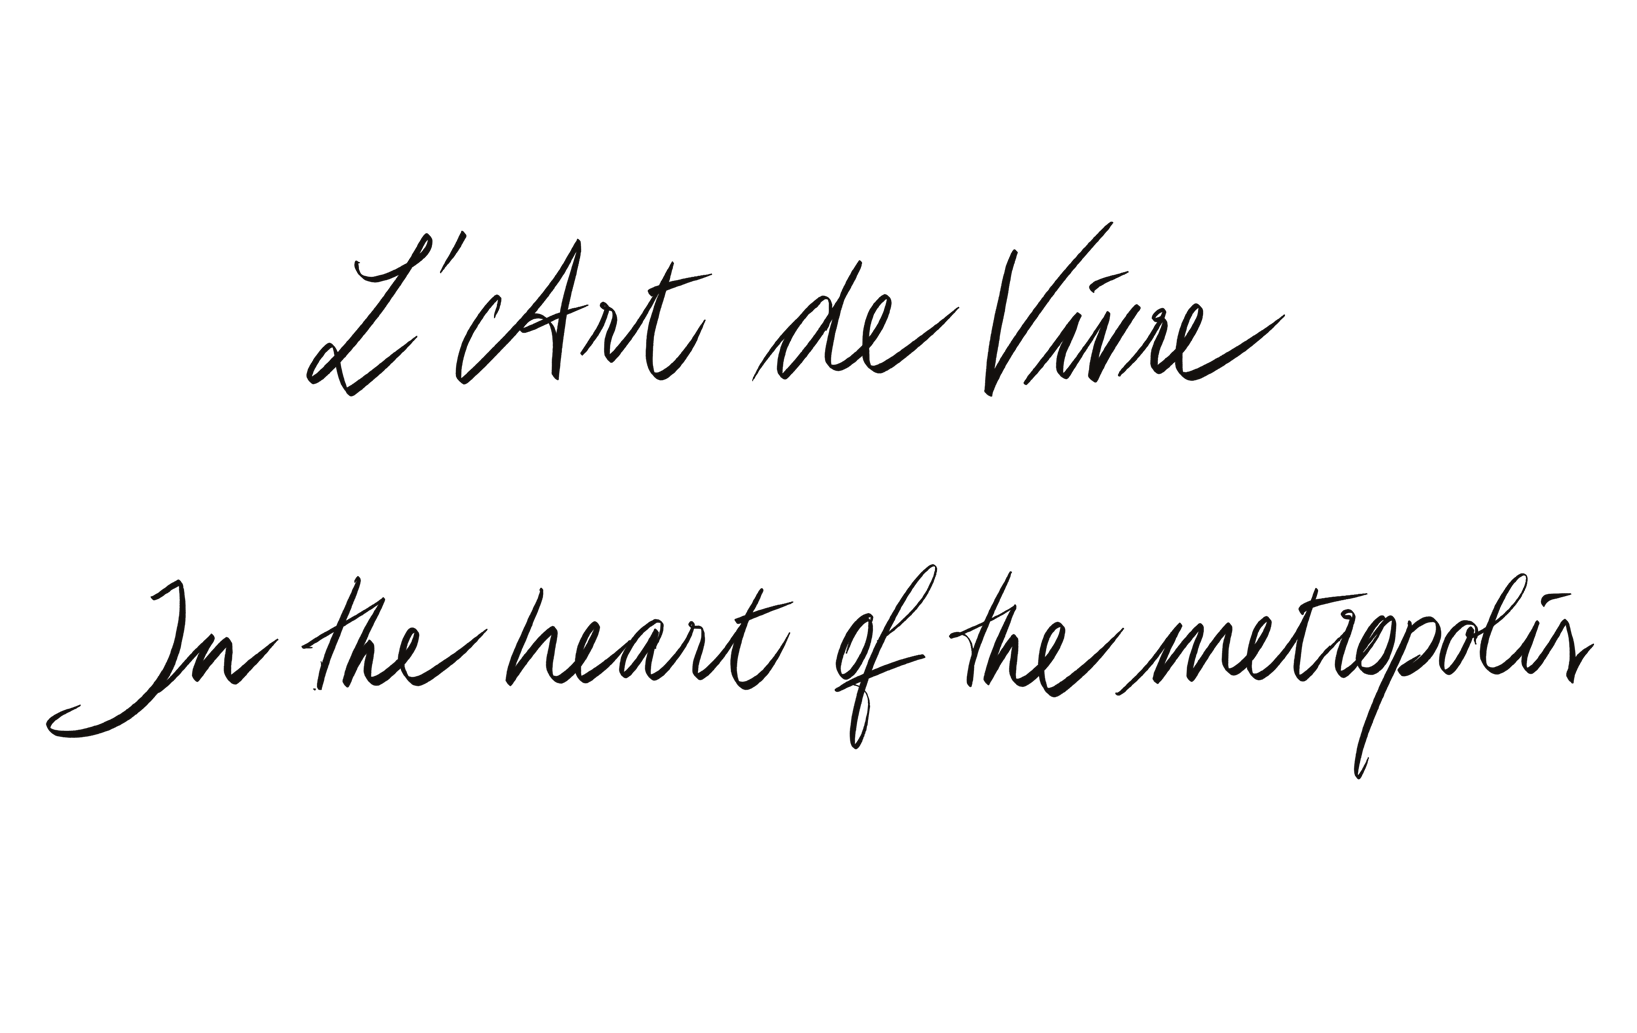 L'Art de Vivre
In the heart of the metropolis